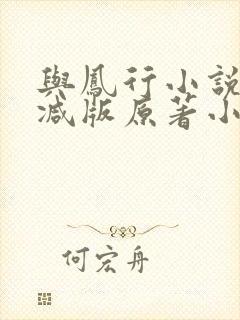 與鳳行小說
減版原著小
何宏舟